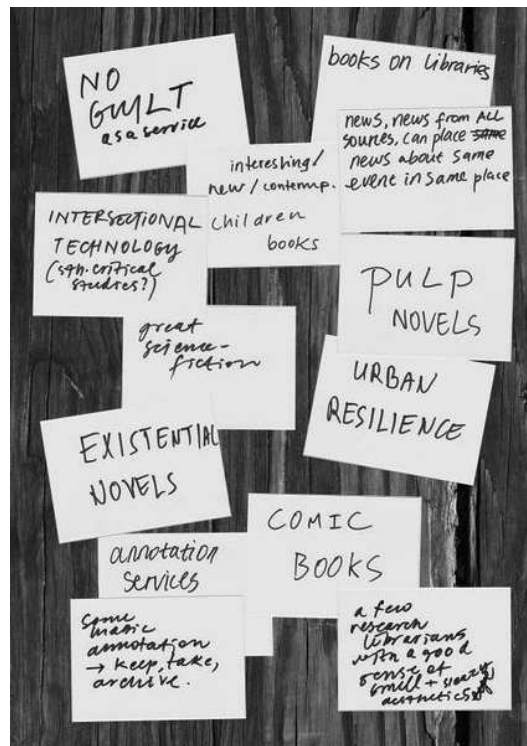 NO
GUILT
as a service
books on libraries
news, news from ALL
sources, can place same
news about same
event in same place
interesting/
new/contemp.
children
books
INTERSECTIONAL
TECHNOLOGY
(sth. critical
studies?)
PULP
NOVELS
great
science-
fiction
URBAN
RESILIENCE
EXISTENTIAL
NOVELS
COMIC
BOOKS
annotation
services
some
magic
annotation
→ keep, take,
archive.
a few
research
librarians
with a good
sense of
smell + sleazy
aesthetics